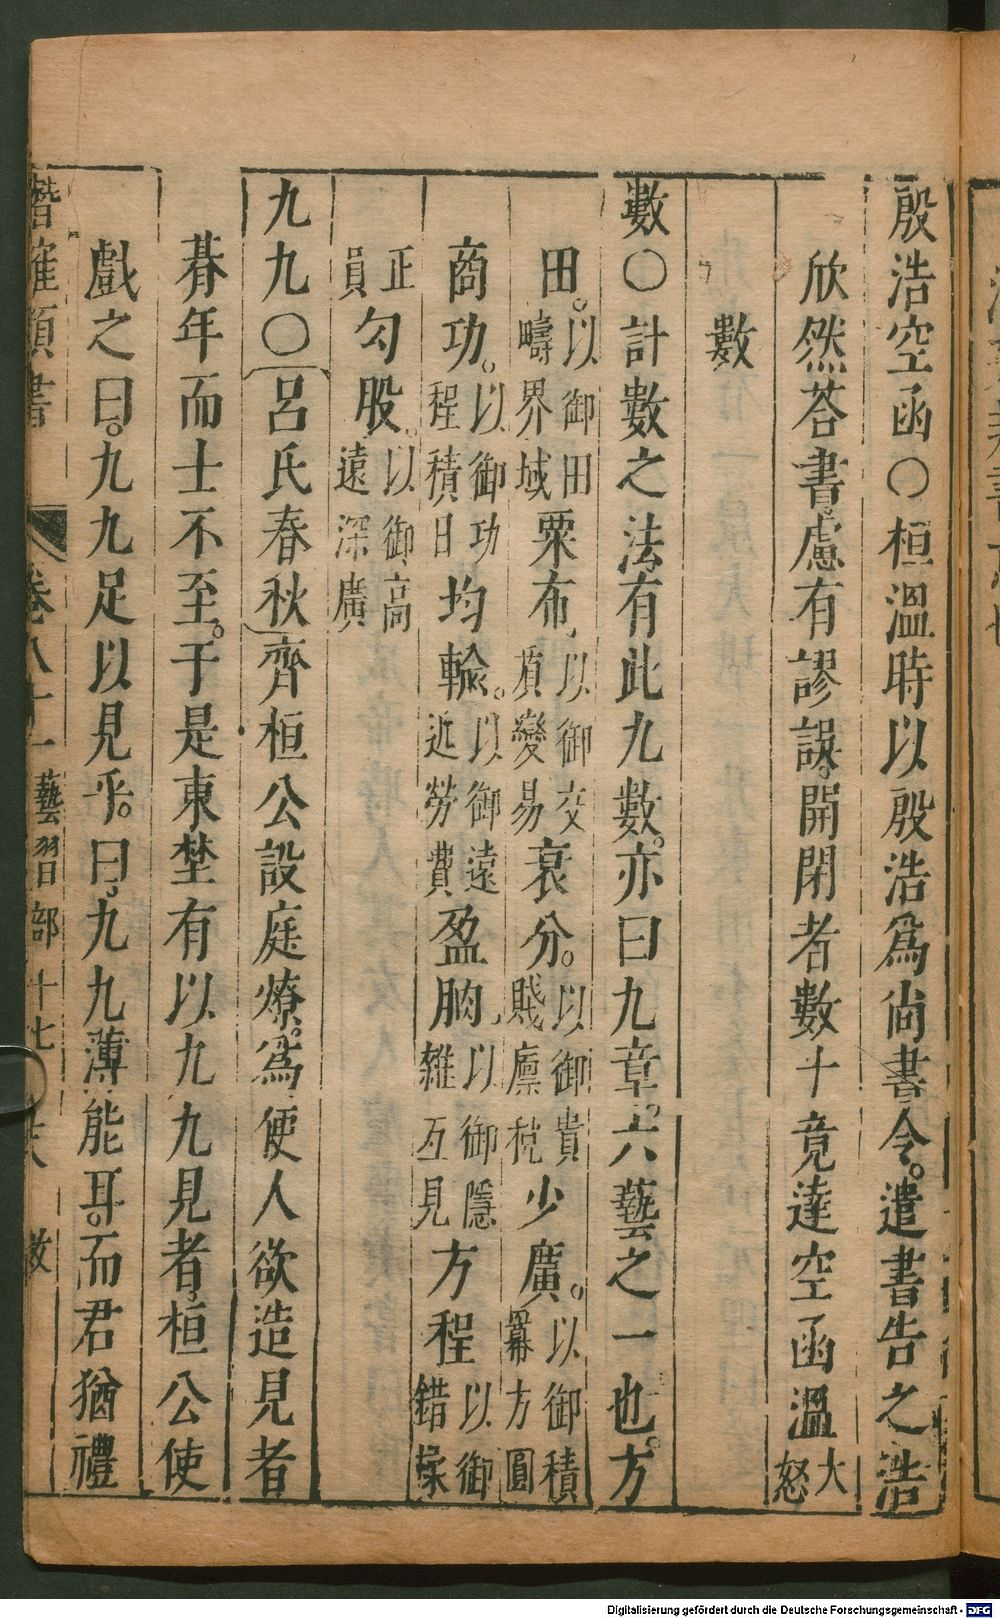 殷浩空函○桓溫時以殷浩爲尙書令遣書告之浩
欣然荅書慮有謬誤開閉者數十竟達空函溫大怒
數
數○計數之法有此九數亦曰九章六藝之一也方
田以御田疇界域粟布以御交貭變易衰分以御貴賤廩稅少廣以御積冪方圓
商功以御功程積日均輸以御遠近勞費盈朒以御隱雜互見方程以御錯揉
正員勾股以御高遠深廣
九九○呂氏春秋齊桓公設庭燎爲便人欲造見者
朞年而士不至于是東埜有以九九見者桓公使
戲之曰九九足以見乎曰九九薄能耳而君猶禮
潛確類書 卷八十一 藝習部十七 數
Digitalisierung gefördert durch die Deutsche Forschungsgemeinschaft - DFG